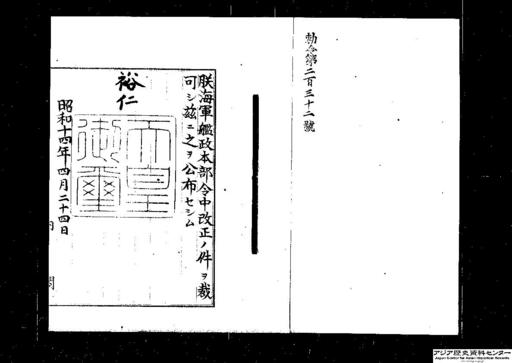 勅令第二百三十二號
朕海軍艦政本部令中改正ノ件ヲ裁
可シ茲ニ之ヲ公布セシム
裕仁
天皇
御璽
昭和十四年四月二十四日
内閣
アジア歴史資料センター
Japan Center for Asian Historical Records